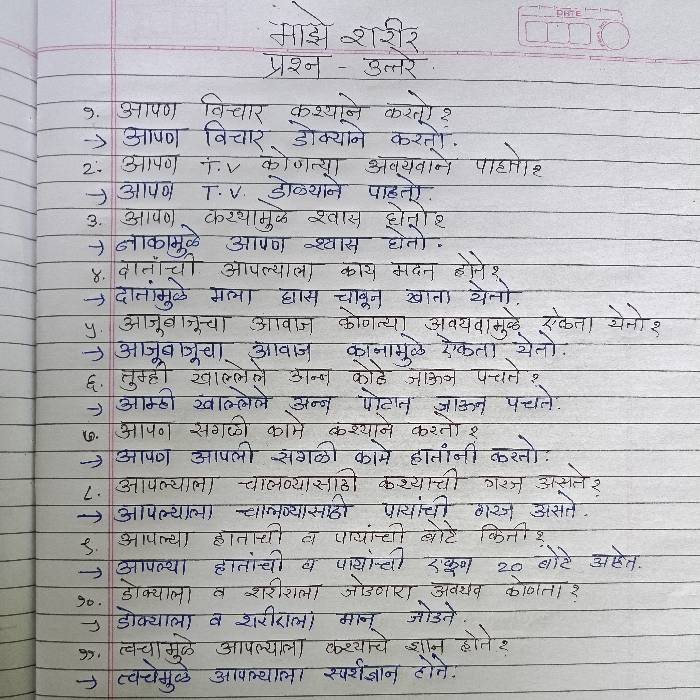 DATE
माझे शरीर
प्रश्न - उत्तरे.
१. आपण विचार कश्याने करतो?
→ आपण विचार डोक्याने करतो.
२. आपण T.V कोणत्या अवयवाने पाहतो?
→ आपण T.V. डोळ्याने पाहतो.
३. आपण कश्यामुळे श्वास घेतो?
→ नाकामुळे आपण श्वास घेतो.
४. दातांची आपल्याला काय मदत होते?
→ दातांमुळे मला घास चावून खाता येतो.
५. आजूबाजूचा आवाज कोणत्या अवयवामुळे ऐकता येतो?
→ आजूबाजूचा आवाज कानामुळे ऐकता येतो.
६. तुम्ही खाल्लेले अन्न कोठे जाऊन पचते?
→ आम्ही खाल्लेले अन्न पोटात जाऊन पचते.
७. आपण सगळी कामे कश्याने करतो?
→ आपण आपली सगळी कामे हातांनी करतो.
८. आपल्याला चालण्यासाठी कश्याची गरज असते?
→ आपल्याला चालण्यासाठी पायांची गरज असते.
९. आपल्या हाताची व पायांची बोटे किती?
→ आपल्या हातांची व पायांची एकून 20 बोटे आहेत.
१०. डोक्याला व शरीराला जोडणारा अवयव कोणता?
→ डोक्याला व शरीराला मान जोडते.
११. त्वचामुळे आपल्याला कश्याचे ज्ञान होते?
→ त्वचेमुळे आपल्याला स्पर्शज्ञान होते.